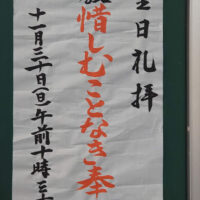 主日礼拝
惜しむことなき奉
十一月三十日(日)午前十時三十